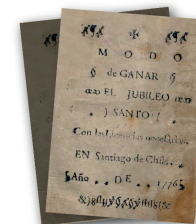 MODO
de GANAR
EL JUBILEO
SANTO
Con las licencias necesarias.
EN Santiago de Chile.
Año DE 1776